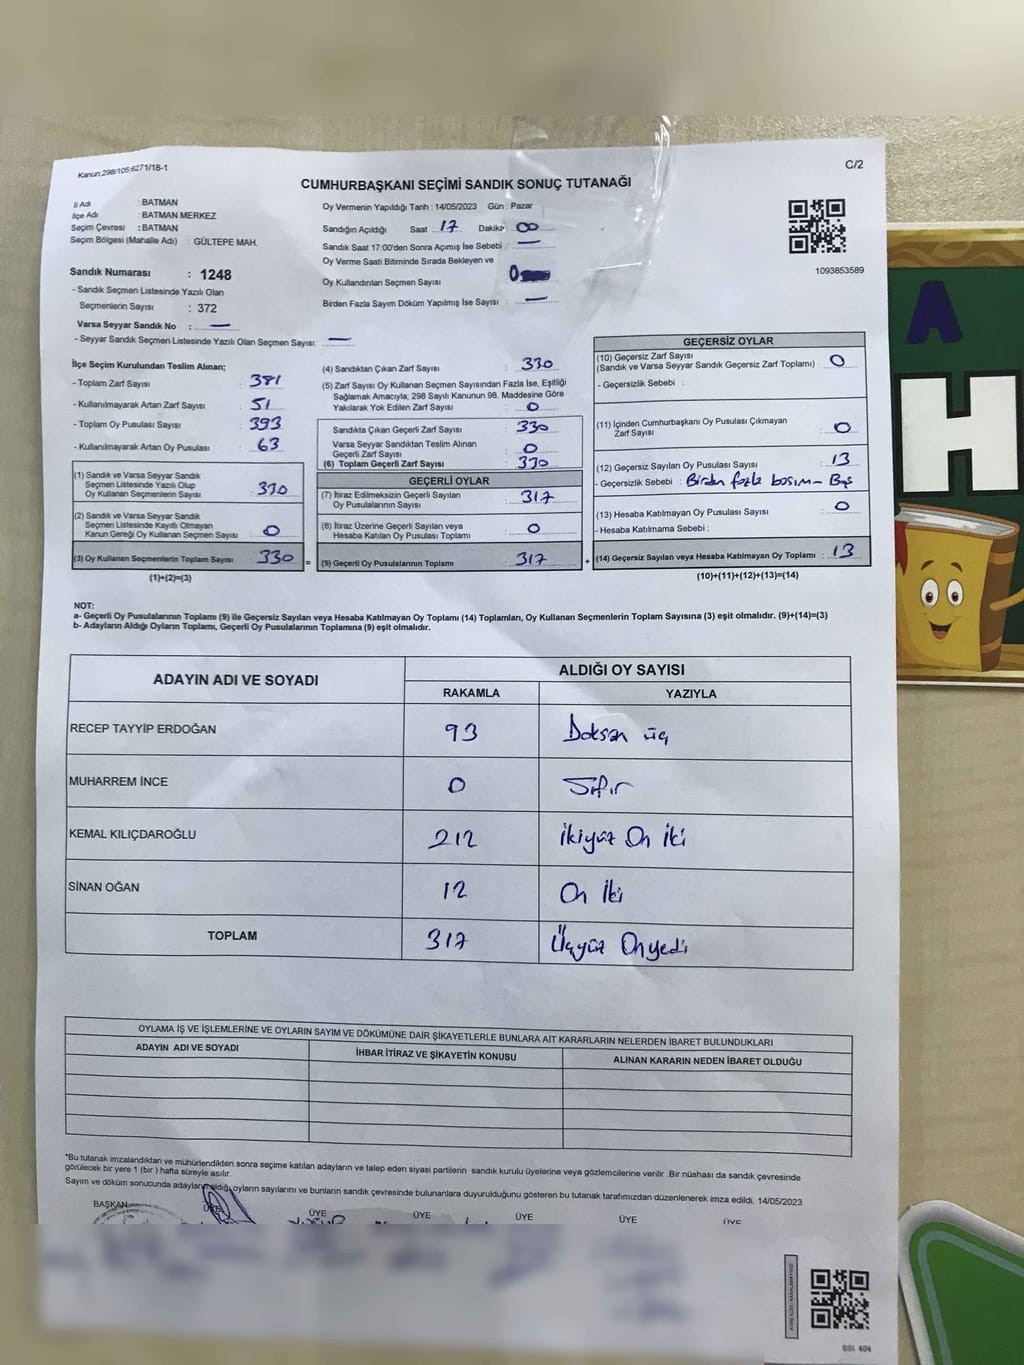 Kanun;298/105;6271/18-1
C/2
CUMHURBAŞKANI SEÇİMİ SANDIK SONUÇ TUTANAĞI
İl Adı : BATMAN
İlçe Adı : BATMAN MERKEZ
Seçim Çevresi : BATMAN
Seçim Bölgesi (Mahalle Adı) : GÜLTEPE MAH.
Sandık Numarası : 1248
- Sandık Seçmen Listesinde Yazılı Olan
Seçmenlerin Sayısı : 372
Varsa Seyyar Sandık No : —
- Seyyar Sandık Seçmen Listesinde Yazılı Olan Seçmen Sayısı: —
Oy Vermenin Yapıldığı Tarih : 14/05/2023 Gün : Pazar
Sandığın Açıldığı Saat 17 Dakika 00
Sandık Saat 17:00'den Sonra Açımış İse Sebebi : —
Oy Verme Saati Bitiminde Sırada Bekleyen ve
Oy Kullandırılan Seçmen Sayısı : 0
Birden Fazla Sayım Döküm Yapılmış İse Sayısı : —
1093853589
İlçe Seçim Kurulundan Teslim Alınan;
- Toplam Zarf Sayısı : 381
- Kullanılmayarak Artan Zarf Sayısı : 51
- Toplam Oy Pusulası Sayısı : 393
- Kullanılmayarak Artan Oy Pusulası : 63
(1) Sandık ve Varsa Seyyar Sandık
Seçmen Listesinde Yazılı Olup
Oy Kullanan Seçmenlerin Sayısı : 330
(2) Sandık ve Varsa Seyyar Sandık
Seçmen Listesinde Kayıtlı Olmayan
Kanun Gereği Oy Kullanan Seçmen Sayısı : 0
(3) Oy Kullanan Seçmenlerin Toplam Sayısı : 330 =
(1)+(2)=(3)
(4) Sandıktan Çıkan Zarf Sayısı : 330
(5) Zarf Sayısı Oy Kullanan Seçmen Sayısından Fazla İse, Eşitliği
Sağlamak Amacıyla; 298 Sayılı Kanunun 98. Maddesine Göre
Yakılarak Yok Edilen Zarf Sayısı : 0
Sandıkta Çıkan Geçerli Zarf Sayısı : 330
Varsa Seyyar Sandıktan Teslim Alınan
Geçerli Zarf Sayısı : 0
(6) Toplam Geçerli Zarf Sayısı : 330
GEÇERLİ OYLAR
(7) İtiraz Edilmeksizin Geçerli Sayılan
Oy Pusulalarının Sayısı : 317
(8) İtiraz Üzerine Geçerli Sayılan veya
Hesaba Katılan Oy Pusulası Toplamı : 0
(9) Geçerli Oy Pusulalarının Toplamı : 317 +
GEÇERSİZ OYLAR
(10) Geçersiz Zarf Sayısı
(Sandık ve Varsa Seyyar Sandık Geçersiz Zarf Toplamı) : 0
- Geçersizlik Sebebi :
(11) İçinden Cumhurbaşkanı Oy Pusulası Çıkmayan
Zarf Sayısı : 0
(12) Geçersiz Sayılan Oy Pusulası Sayısı : 13
- Geçersizlik Sebebi : Birden fazla basım - Boş
(13) Hesaba Katılmayan Oy Pusulası Sayısı : 0
- Hesaba Katılmama Sebebi :
(14) Geçersiz Sayılan veya Hesaba Katılmayan Oy Toplamı : 13
(10)+(11)+(12)+(13)=(14)
NOT:
a- Geçerli Oy Pusulalarının Toplamı (9) ile Geçersiz Sayılan veya Hesaba Katılmayan Oy Toplamı (14) Toplamları, Oy Kullanan Seçmenlerin Toplam Sayısına (3) eşit olmalıdır. (9)+(14)=(3)
b- Adayların Aldığı Oyların Toplamı, Geçerli Oy Pusulalarının Toplamına (9) eşit olmalıdır.
ADAYIN ADI VE SOYADI
ALDIĞI OY SAYISI
RAKAMLA YAZIYLA
RECEP TAYYİP ERDOĞAN 93 Doksan üç
MUHARREM İNCE 0 Sıfır
KEMAL KILIÇDAROĞLU 212 İkiyüz On İki
SİNAN OĞAN 12 On İki
TOPLAM 317 Üçyüz Onyedi
OYLAMA İŞ VE İŞLEMLERİNE VE OYLARIN SAYIM VE DÖKÜMÜNE DAİR ŞİKAYETLERLE BUNLARA AİT KARARLARIN NELERDEN İBARET BULUNDUKLARI
ADAYIN ADI VE SOYADI İHBAR İTİRAZ VE ŞİKAYETİN KONUSU ALINAN KARARIN NEDEN İBARET OLDUĞU
*Bu tutanak imzalandıktan ve mühürlendikten sonra seçime katılan adayların ve talep eden siyasi partilerin sandık kurulu üyelerine veya gözlemcilerine verilir .Bir nüshası da sandık çevresinde
görülecek bir yere 1 (bir ) hafta süreyle asılır.
Sayım ve döküm sonucunda adayların aldığı oyların sayılarını ve bunların sandık çevresinde bulunanlara duyurulduğunu gösteren bu tutanak tarafımızdan düzenlenerek imza edildi. 14/05/2023
BAŞKAN ÜYE ÜYE ÜYE ÜYE ÜYE ÜYE
A
H